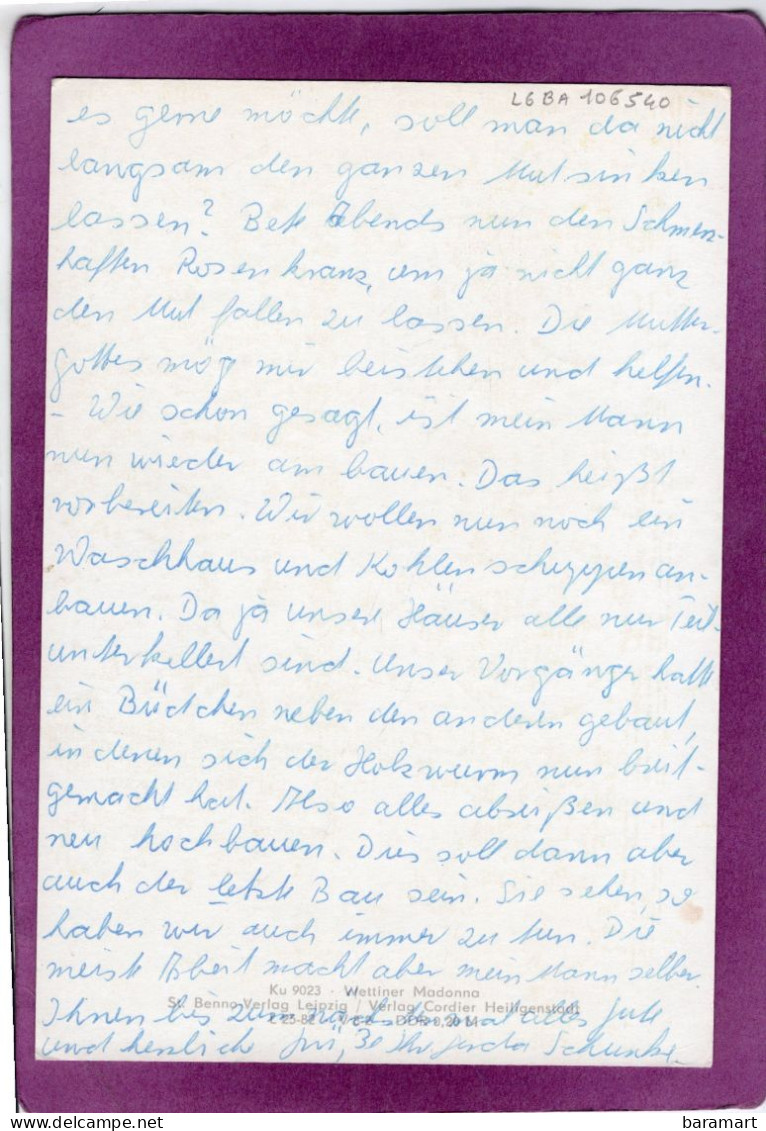 L6BA 106540
es gerne möchte, soll man da nicht
langsam den ganzen Mut sinken
lassen? Bete Abends nun den Schmerz-
haften Rosenkranz, um ja nicht ganz
den Mut fallen zu lassen. Die Mutter-
gottes mög mir beistehen und helfen.
- Wie schon gesagt, ist mein Mann
nun wieder am bauen. Das heißt
vorbereiten. Wir wollen nun noch ein
Waschhaus und Kohlenschuppen an-
bauen. Da ja unsere Häuser alle nur Teil-
unterkellert sind. Unser Vorgänger hatte
ein Büdchen neben den anderen gebaut,
in denen sich der Holzwurm nun breit-
gemacht hat. Also alles abreißen und
neu hochbauen. Dies soll dann aber
auch der letzte Bau sein. Sie sehen, so
haben wir auch immer zu tun. Die
meiste Arbeit macht aber mein Mann selber.
Ku 9023 · Wettiner Madonna
St. Benno-Verlag Leipzig / Verlag Cordier Heiligenstadt
Ihnen bis zum nächsten Mal alles Gute
und herzliche Grüße Ihre Gerda
baramart